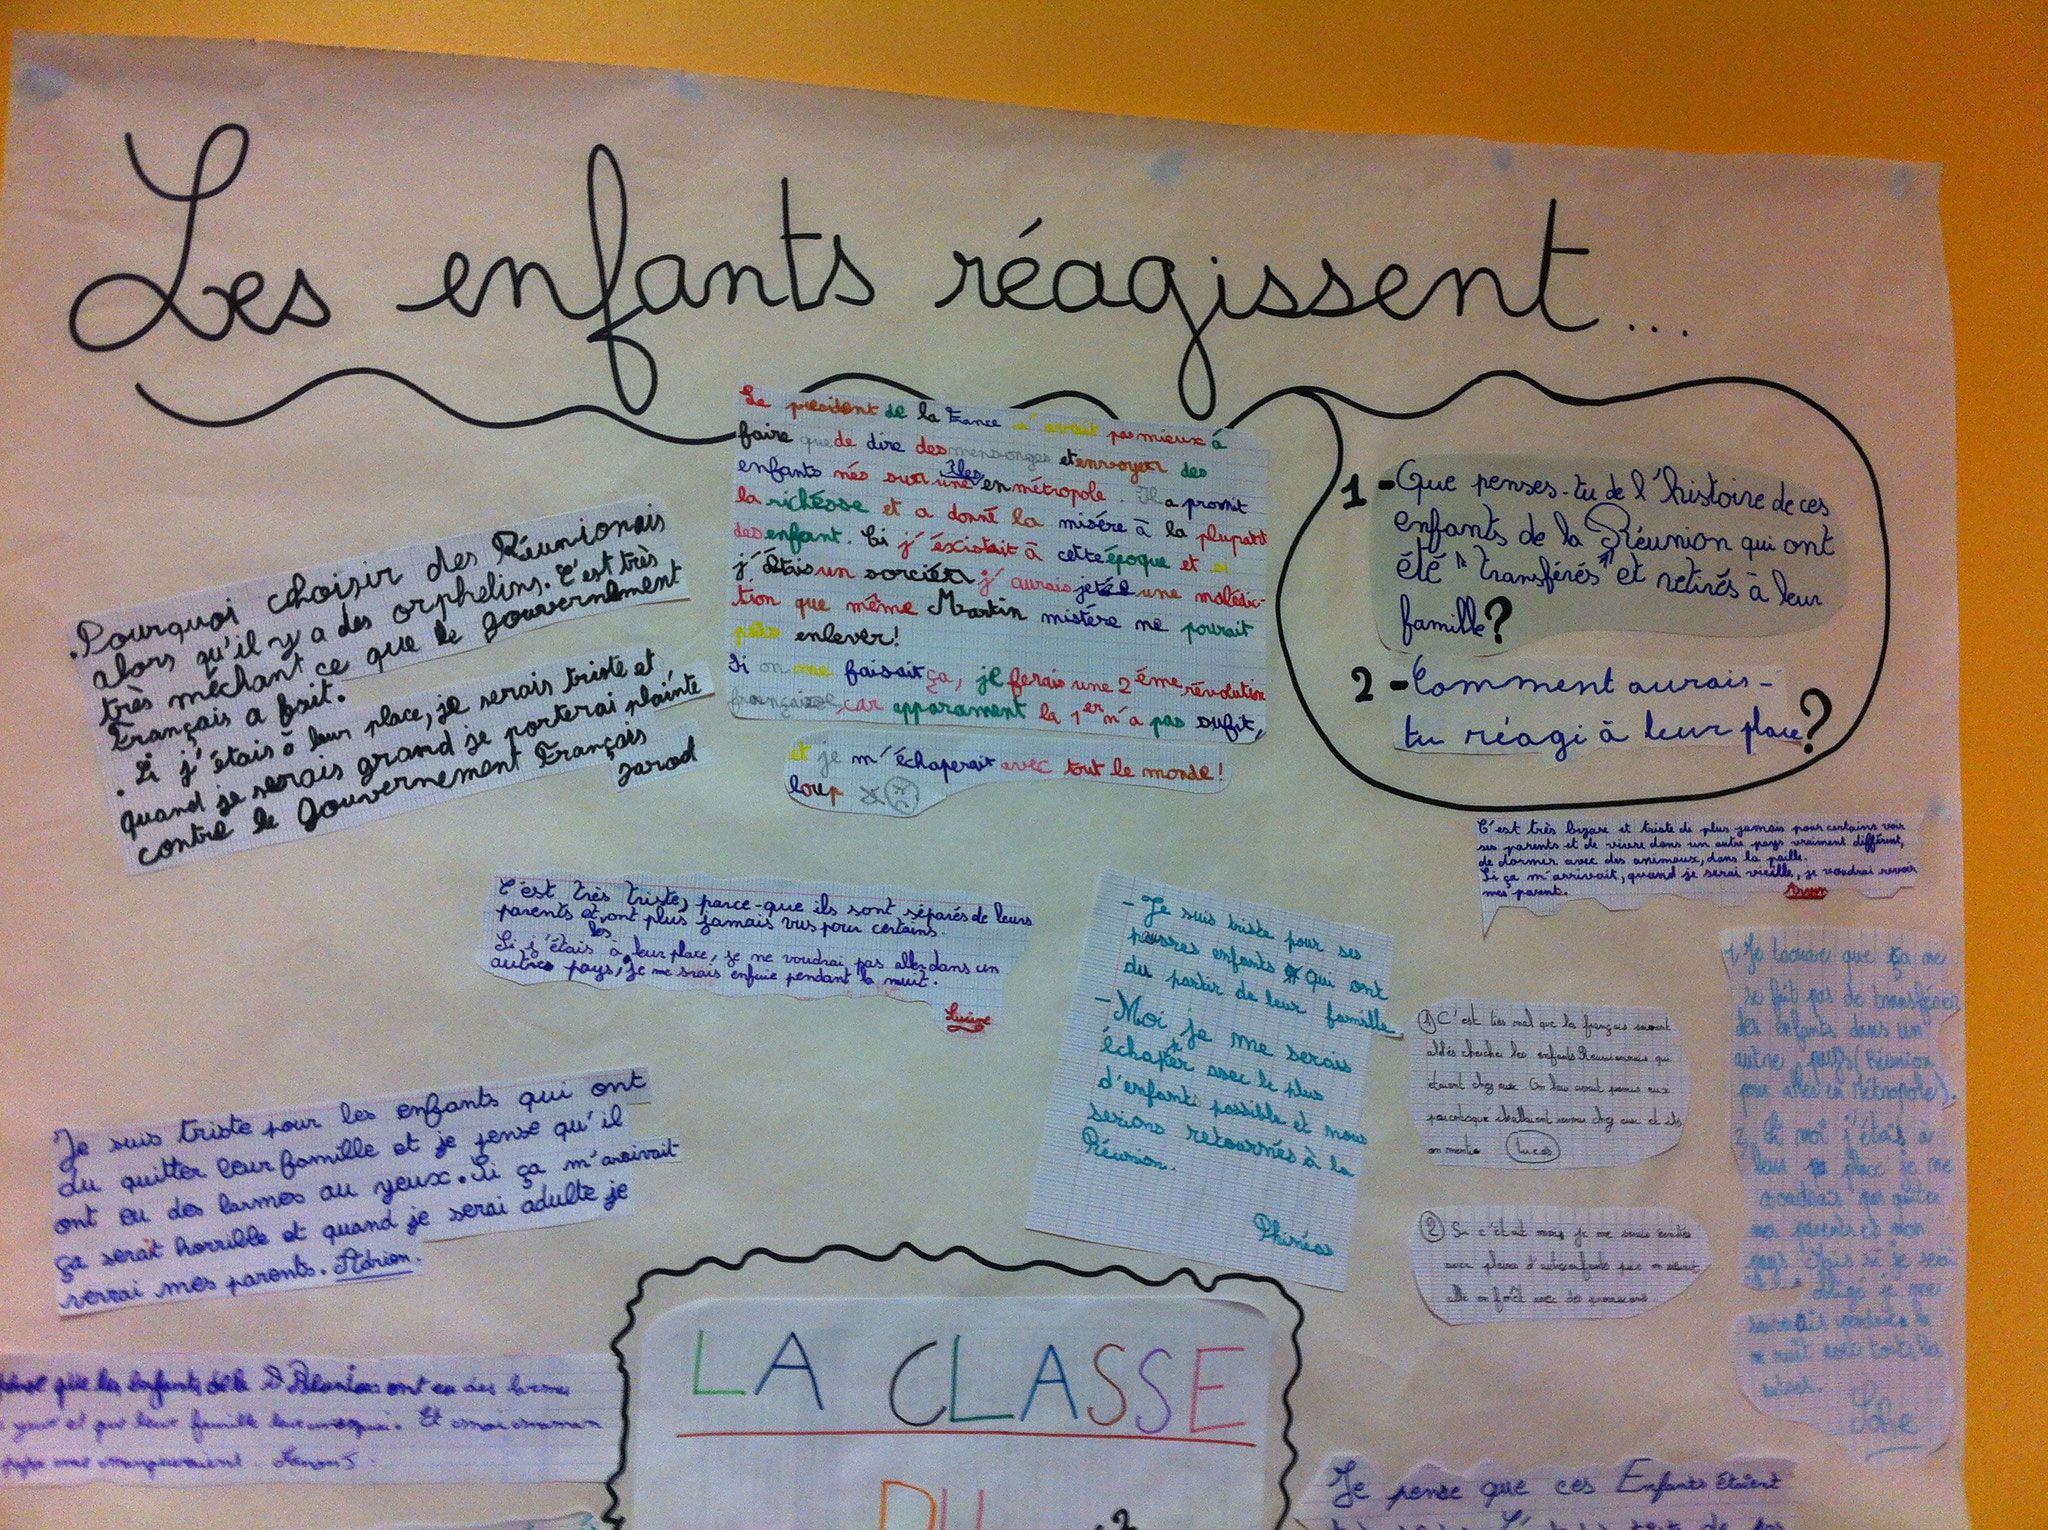 Les enfants réagissent...
Le president de la France n'avait pas mieux à
faire que de dire des mensonges et envoyer des
enfants nés sur une îles en métropole. Il a promit
la richésse et a donné la misére à la plupart
des enfant. Ci j'éxistait à cette époque et si
j'étais un sorciér j'aurais jetée une malédic-
tion que même Martin mistére ne pourait
pas enlever!
Si on me faisait ça, je ferais une 2 éme révolution
française, car apparament la 1er n'a pas sufit,
et je m'échaperait avec tout le monde!
loup
1-Que penses-tu de l'histoire de ces
enfants de la Réunion qui ont
été "transférés" et retirés à leur
famille?
2-Comment aurais-
tu réagi à leur place?
.Pourquoi choisir des Réunionais
alors qu'il y a des orphelins. C'est très
très méchant ce que le gouvernement
Français a fait.
. Si j'étais à leur place, je serais triste et
quand je serais grand je porterai plainte
contre le Gouvernement Français
Jarod
C'est très bizare et triste de plus jamais pour certains voir
ses parents et de vivre dans un autre pays vraiment différent,
de dormir avec des animaux, dans la paille.
Si ça m'arrivait, quand je serai vieille, je voudrai revoir
mes parent.
C'est très triste, parce-que ils sont séparés de leurs
parents et les ont plus jamais vus pour certains.
Si j'étais à leur place, je ne voudrai pas aller dans un
autres pays, je me srais enfuie pendant la nuit.
- Je suis triste pour ses
pauvres enfants qui ont
du partir de leur famille
- Moi je me serais
échaper avec le plus
d'enfants possible et nous
serions retournés à la
Réunion.
Phinéas
1) C'est très mal que les français
chercher les enfants Réunionnais qui
étaient chez eux. On leur avait promis eux
chez eux et ils
on mentis Lucas
2) Si c'était moi je me serais
avec pleins d'autre enfants
en forêt avec des
1. Je trouve que ça ne
se fait pas de transférer
des enfants dans un
autre pays (Réunion
pour aller en Métropole).
2. Si moi j'étais à
leur place je ne
voudrais pas quitter
mes parents et mon
pays. Mais si je serai
obligé je me
la nuit
Je suis triste pour les enfants qui ont
du quitter leur famille et je pense qu'il
ont eu des larmes au yeux. Si ça m'arrivait
ça serait horrible et quand je serai adulte je
verrai mes parents. Adrien.
que les enfants de la Réunion ont eu des larmes
yeux et que leur famille leur manquai. Et moi maman
papa me manqueraient.
LA CLASSE
DU
Je pense que ces Enfants étaient